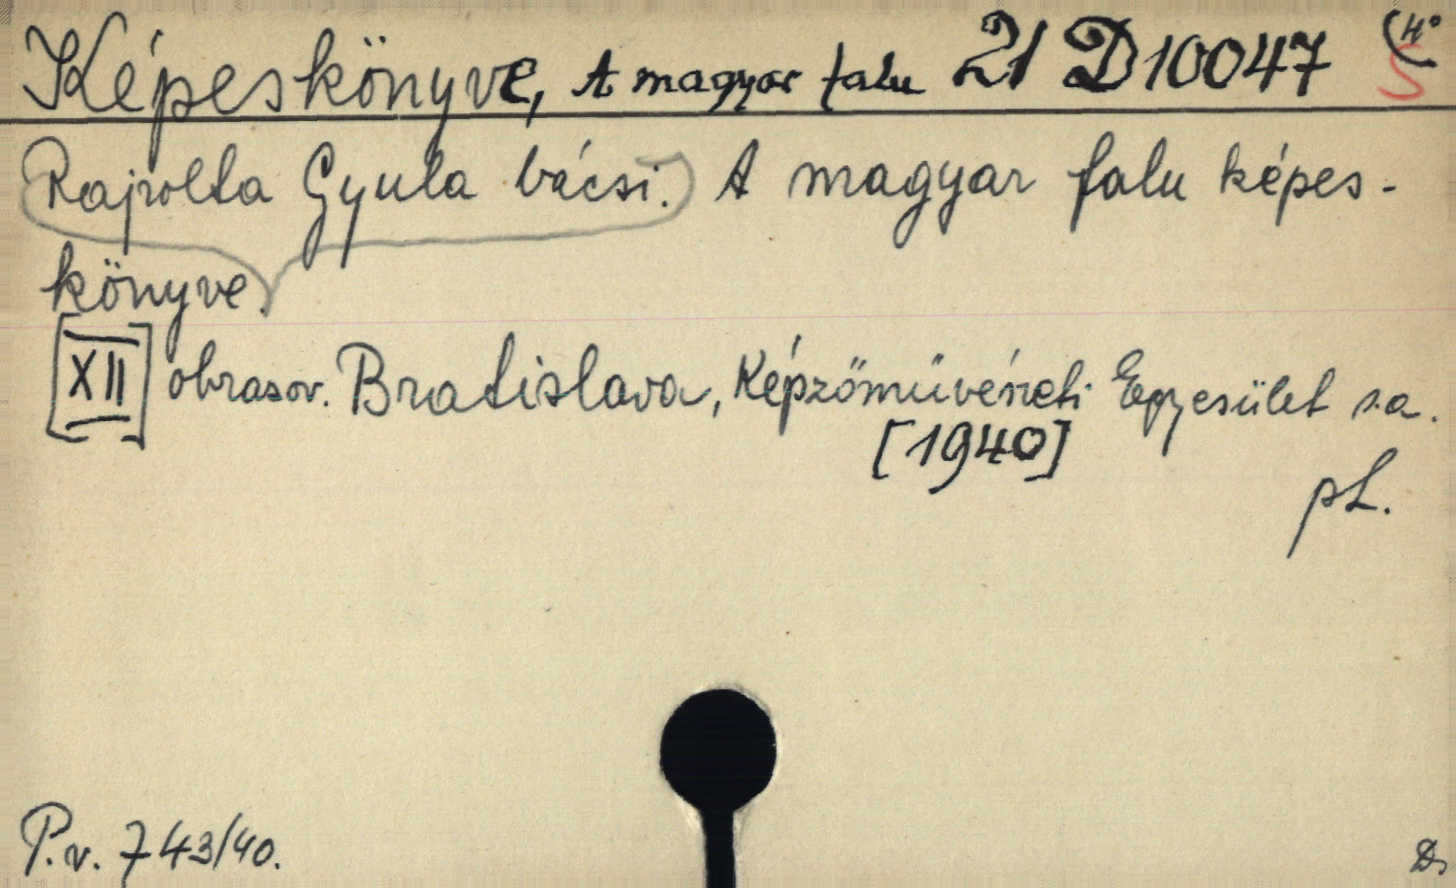 Képeskönyve, A magyar falu 21 D 10047 4°
S
Rajzolta Gyula bácsi. A magyar falu képes-
könyve.
[XII] obrazov. Bratislava, Képzőművészeti Egyesület s.a.
[1940]
pL.
P.v. 743/40.